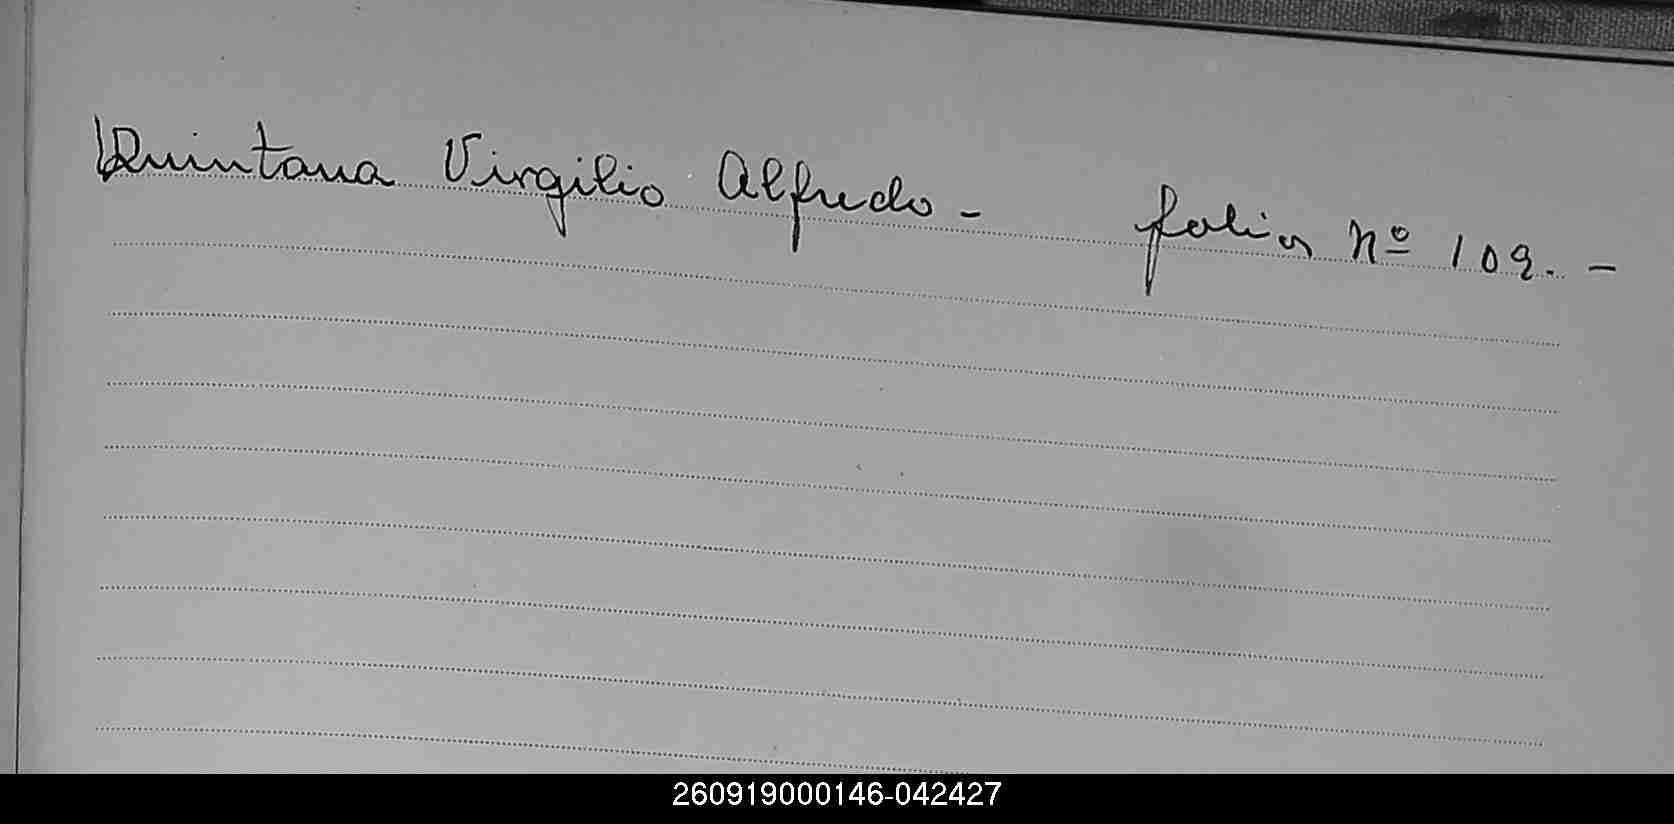 Quintana Virgilio Alfredo - folios Nº 109. -
260919000146-042427